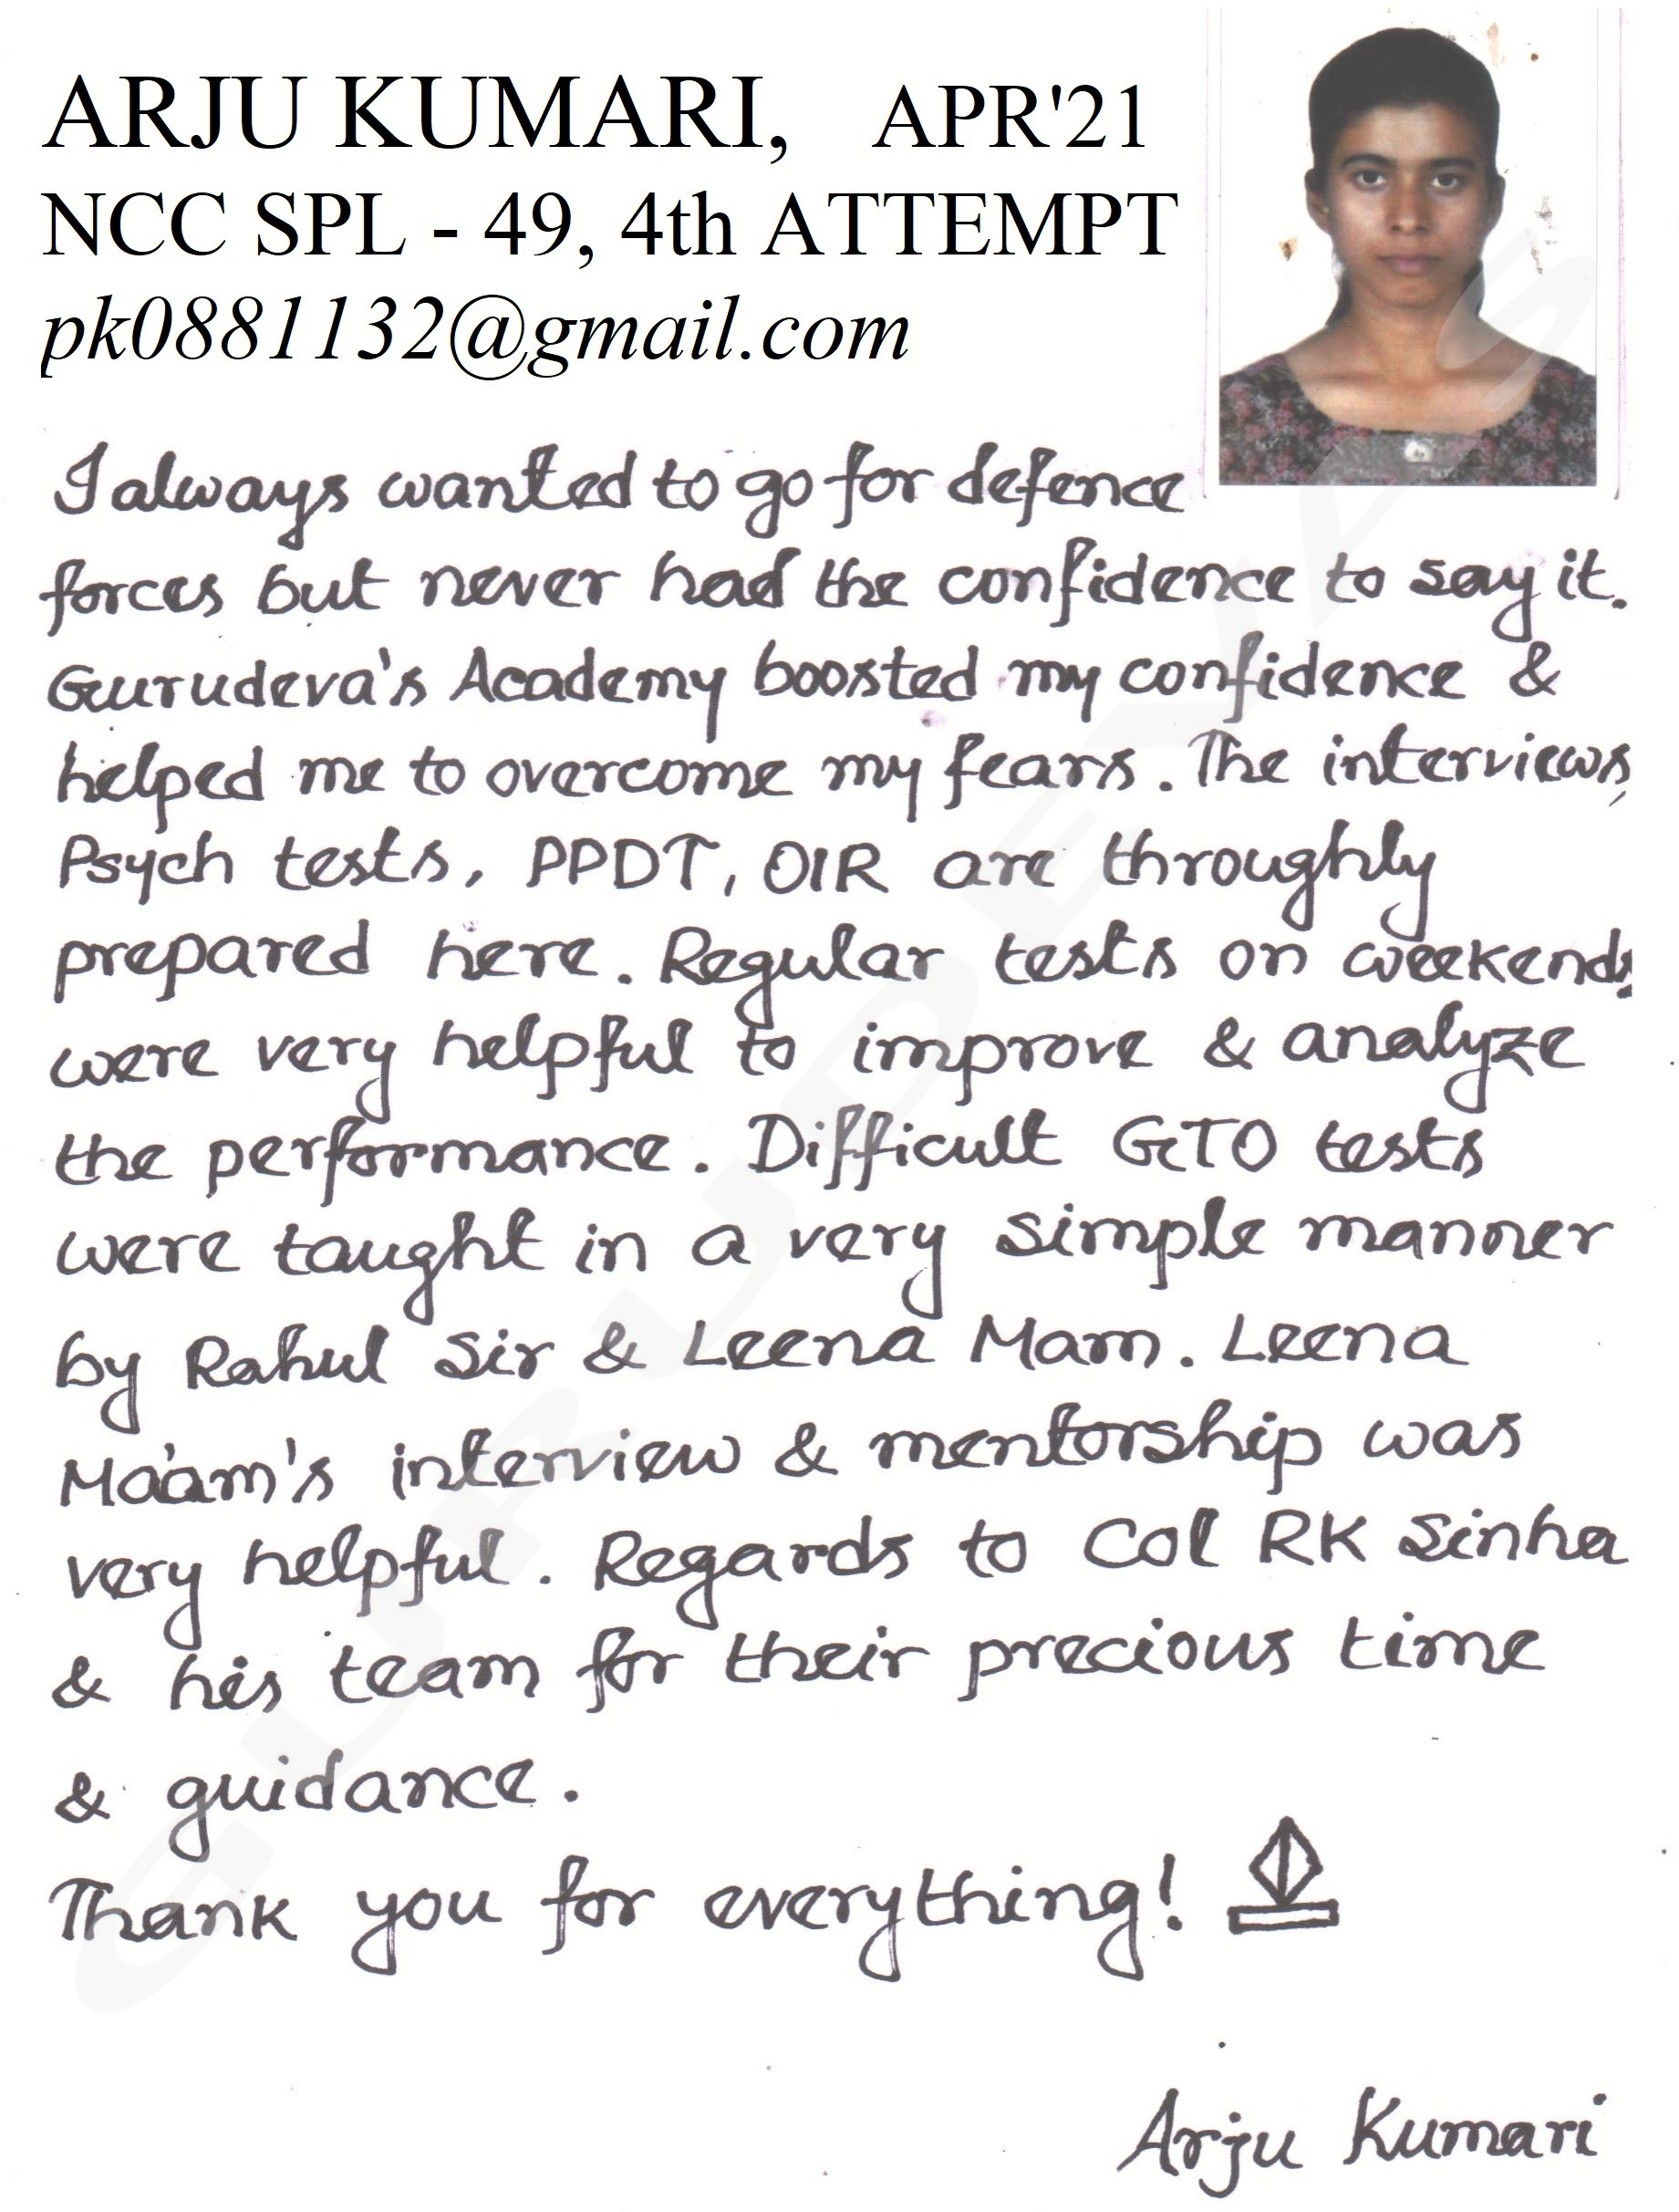 ARJU KUMARI, APR'21
NCC SPL - 49, 4th ATTEMPT
pk0881132@gmail.com
I always wanted to go for defence
forces but never had the confidence to say it.
Gurudeva's Academy boosted my confidence &
helped me to overcome my fears. The interviews,
Psych tests, PPDT, OIR are throughly
prepared here. Regular tests on weekends
were very helpful to improve & analyze
the performance. Difficult GTO tests
were taught in a very simple manner
by Rahul Sir & Leena Mam. Leena
Ma'am's interview & mentorship was
very helpful. Regards to Col RK Sinha
& his team for their precious time
& guidance.
Thank you for everything!
Arju Kumari
GURUDEVAS